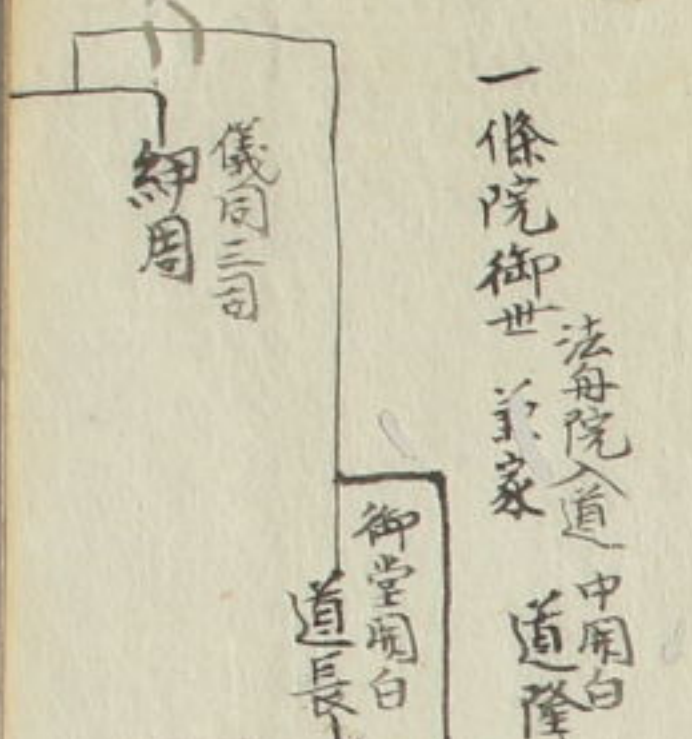 一條院御世
法舟院入道
兼家
中関白
道隆
御堂関白
道長
儀同三司
伊周